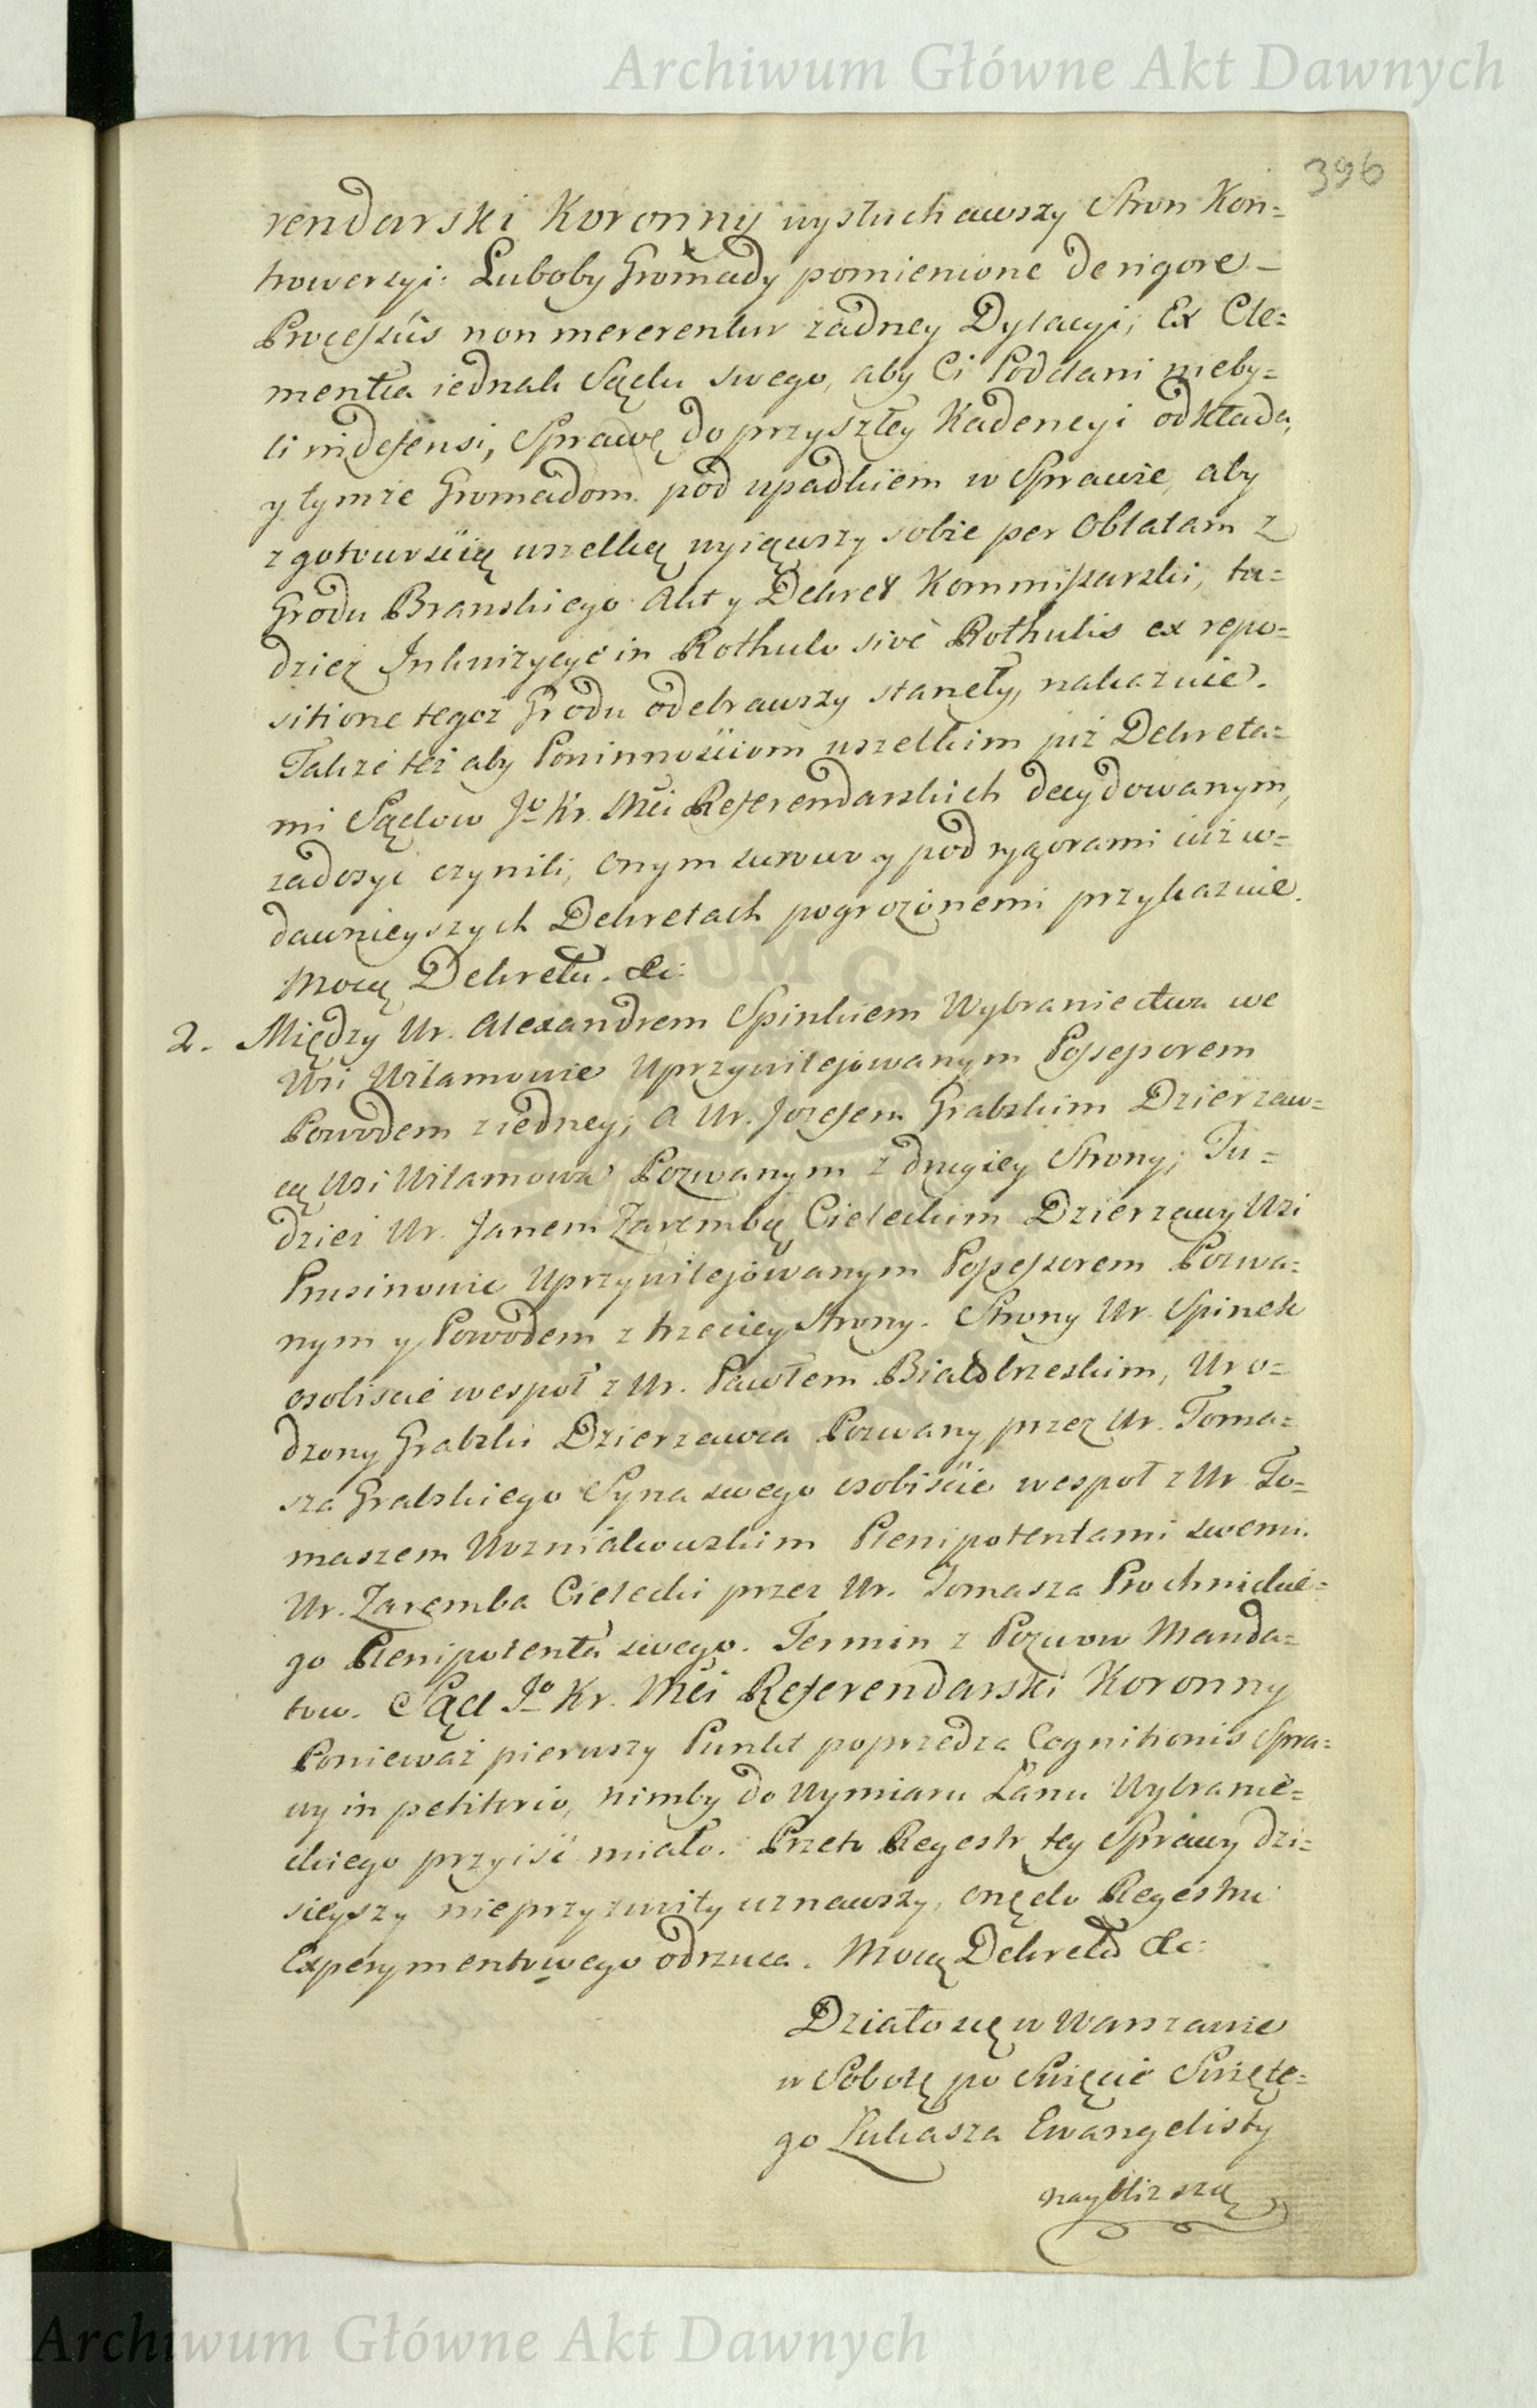 Archiwum Główne Akt Dawnych
396
rendarski Koronny wysłuchawszy Stron Kon=
trowersyi: Luboby Gromady pomienione de rigore
Processûs non mererentur żadney Dylacyi, Ex Cle=
mentia iednak Sądu swego, aby Ci Poddani nieby=
li indefensi, Sprawę do przyszłey Kadencyi odkłada,
y tymże Gromadom pod upadkiem w Sprawie, aby
z gotowością wszelką wyiąwszy sobie per Oblatam z
Grodu Branskiego Akt y Dekret Kommissarski, tu=
dzież Inkwizycye in Rothulo sive Rothulis ex repo=
sitione tegoż Grodu odebrawszy stanęły, nakazuie.
Także też aby Powinnościom wszelkim już Dekreta=
mi Sądow Jo Kr. Mci Referendarskich decydowanym,
zadosyć czynili, onym surowo y pod rygorami iuż w=
dawnieyszych Dekretach pogrożonemi przykazuie.
Mocą Dekretu. &c:
2. Między Ur. Alexandrem Spinkiem Wybraniectwa we
Wsi Wilamowie Uprzywilejowanym Possessorem
Powodem z iedney; a Ur. Jozefem Grabskim Dzierzaw=
cą Wsi Wilamowa Pozwanym z drugiey Strony; Tu=
dzież Ur. Janem Zarembą Cieleckim Dzierzawy Wsi
Prusinowic Uprzywilejowanym Possessorem Pozwa=
nym y Powodem z trzeciey Strony. Strony Ur. Spinek
osobiscie wespoł z Ur. Pawłem Białobrzeskim, Uro=
dzony Grabski Dzierzawca Pozwany przez Ur. Toma=
sza Grabskiego Syna swego osobiście wespoł z Ur. To=
maszem Wozniakowskim Plenipotentami swemi.
Ur. Zaremba Cielecki przez Ur. Tomasza Prochnickie=
go Plenipotenta swego. Termin z Pozwow Manda=
tow. Sąd Jo Kr. Mci Referendarski Koronny
Ponieważ pierwszy Punkt poprzedza Cognitionis Spra=
wy in petitorio, nimby do Wymiaru Łanu Wybranie=
ckiego przyiść miało. Przeto Regestr tey Sprawy dzi=
sieyszy nieprzyzwity uznawszy, onę do Regestru
Experymentowego odrzuca. Mocą Dekretu &c:
Działo się w Warszawie
w Sobotę po Swięcie Swięte=
go Łukasza Ewangelisty
naybliższą
Archiwum Główne Akt Dawnych